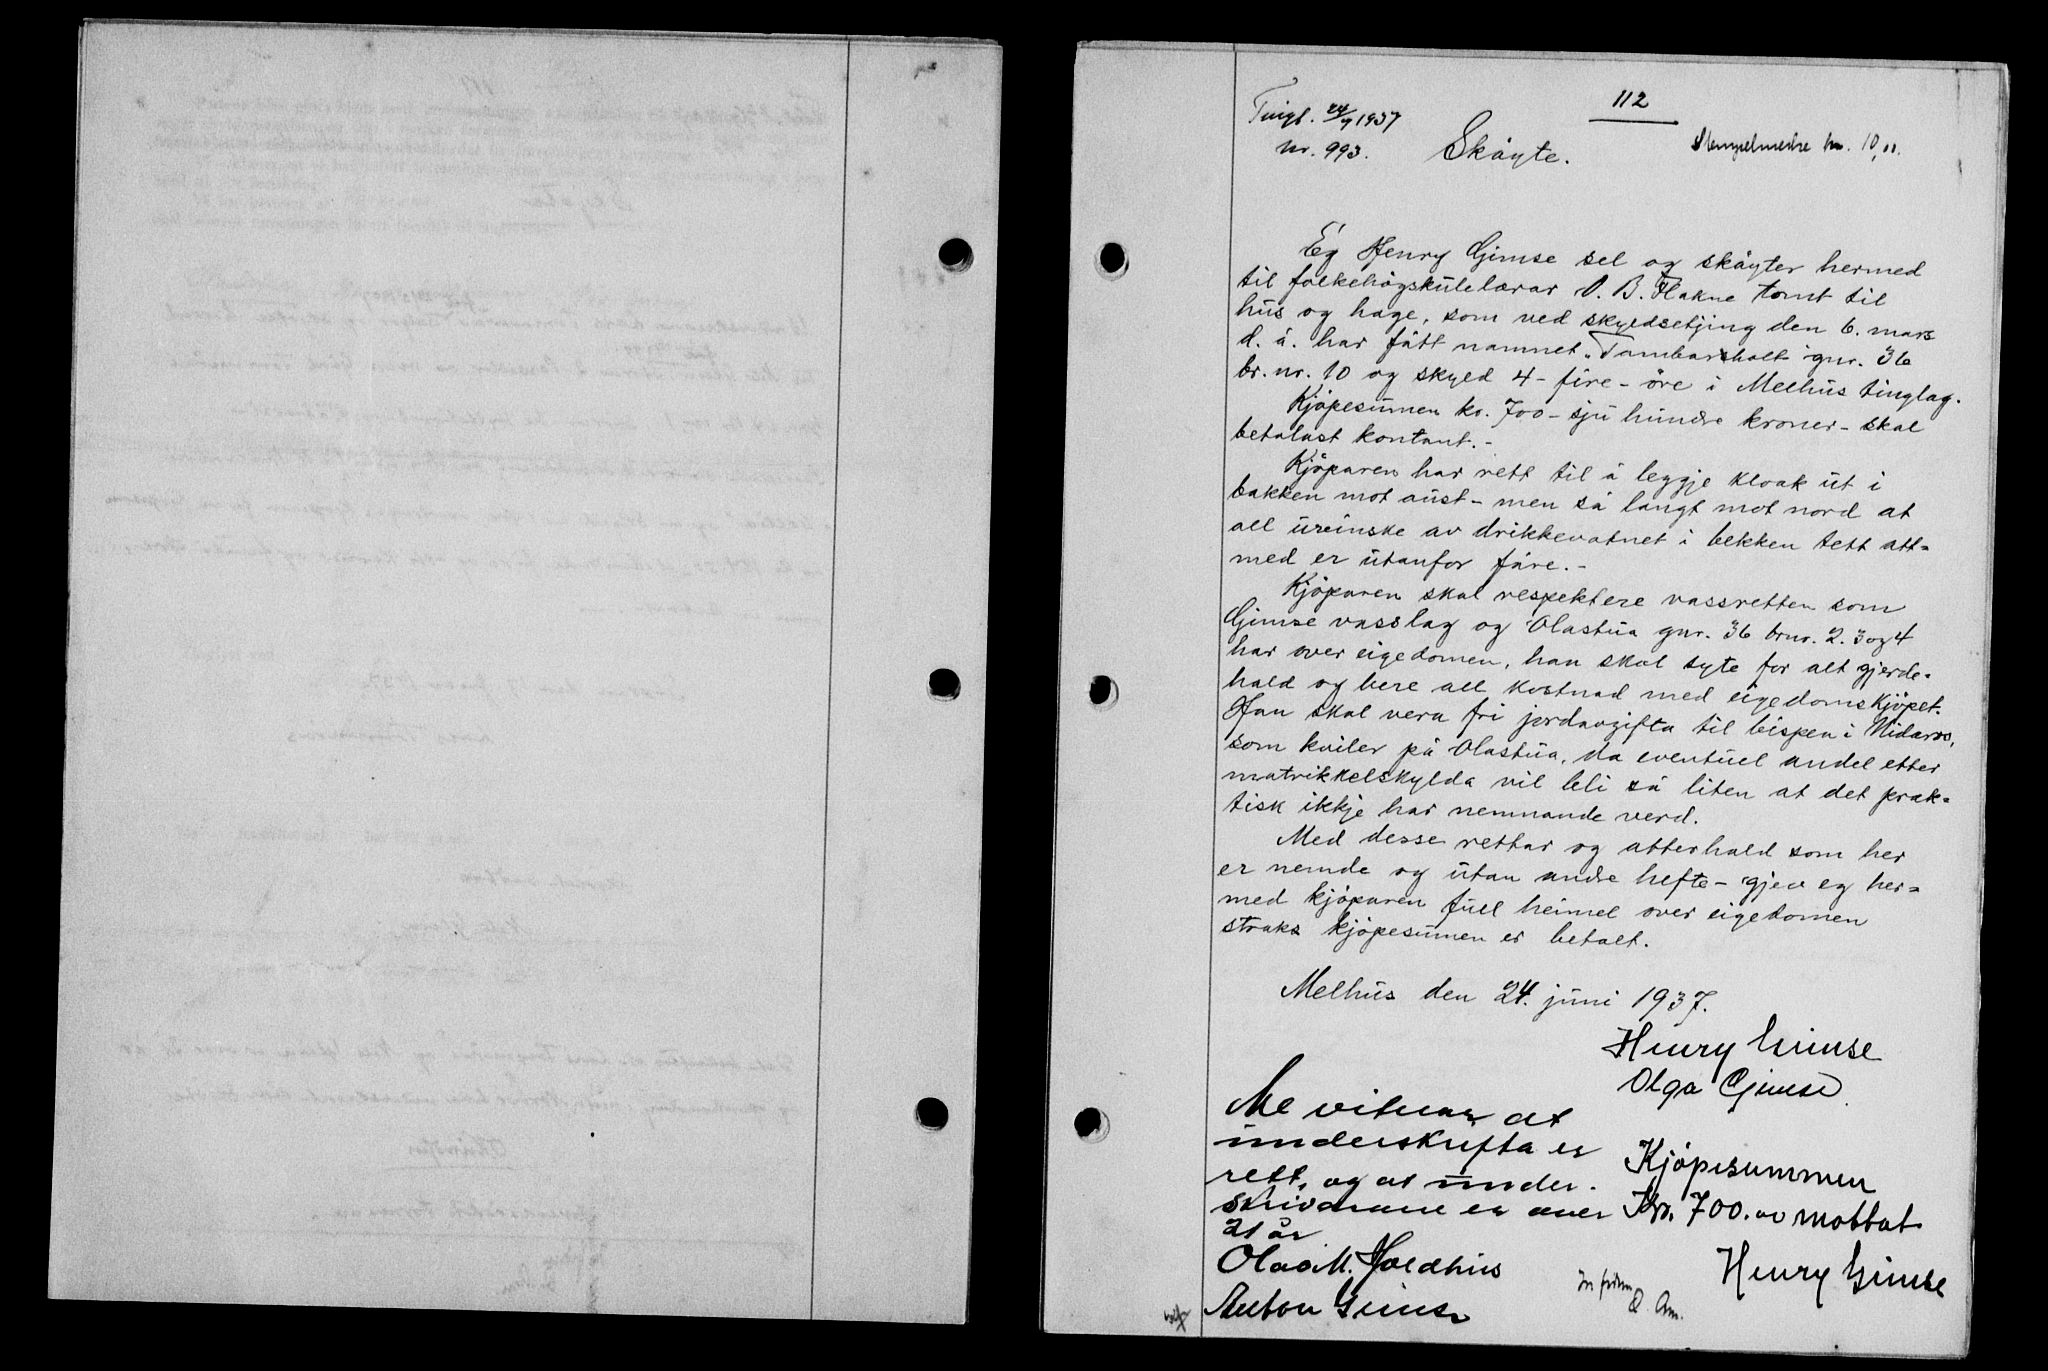 112
Tingl. 24/7 1937
nr. 993.
Skøyte.
Stempelmerke kr. 10,00.
Eg Henry Gimse sel og skøyter hermed
til folkehøgskulelærar O. B. Flakne tomt til
hus og hage, som ved skyldsetjing den 6. mars
d. å. har fått namnet „Tambarsholt" gnr. 36
br. nr. 10 og skyld 4 - fire - öre i Melhus tinglag.
Kjöpesumen kr. 700 - sju hundre kroner - skal
betalast kontant. -
Kjöparen har rett til å leggje kloak ut i
bakken mot aust - men så langt mot nord at
all ureinske av drikkevatnet i bekken tett att-
med er utanfor fåre. -
Kjöparen skal respektere vassretten som
Gimse vasslag og Olastua gnr. 36 brnr. 2. 3 og 4
har over eigedomen, han skal syte for alt gjerde-
hald og bere all kostnad med eigedomskjöpet.
Han skal vera fri jordavgifta til bispen i Nidaros,
som kviler på Olastua, da eventuel andel etter
matrikkelskylda vil bli så liten at det prak-
tisk ikkje har nemnande verd.
Med desse rettar og atterhald som her
er nemde og utan andre hefte - gjev eg her-
med kjöparen full heimel over eigedomen
straks kjöpesumen er betalt.
Melhus den 24. juni 1937.
Henry Gimse
Olga Gimse
Me vitnar at
underskrifta er
rett, og at under-
skrivarane er over
21 år
Olav M. Holdhus
Anton Gimse
Kjöpesummen
Kr. 700.00 mottat
Henry Gimse